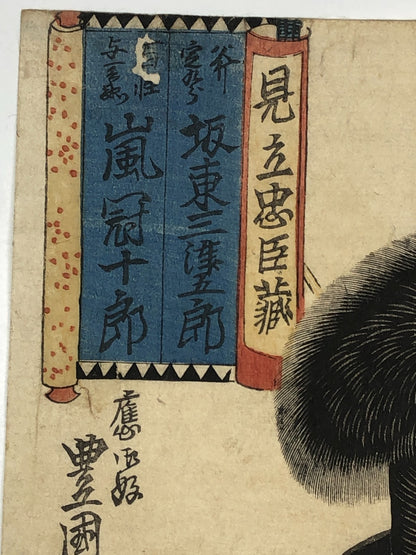 見立忠臣蔵
斧
定九郎
坂東三津五郎
嵐冠十郎
應好
豊国